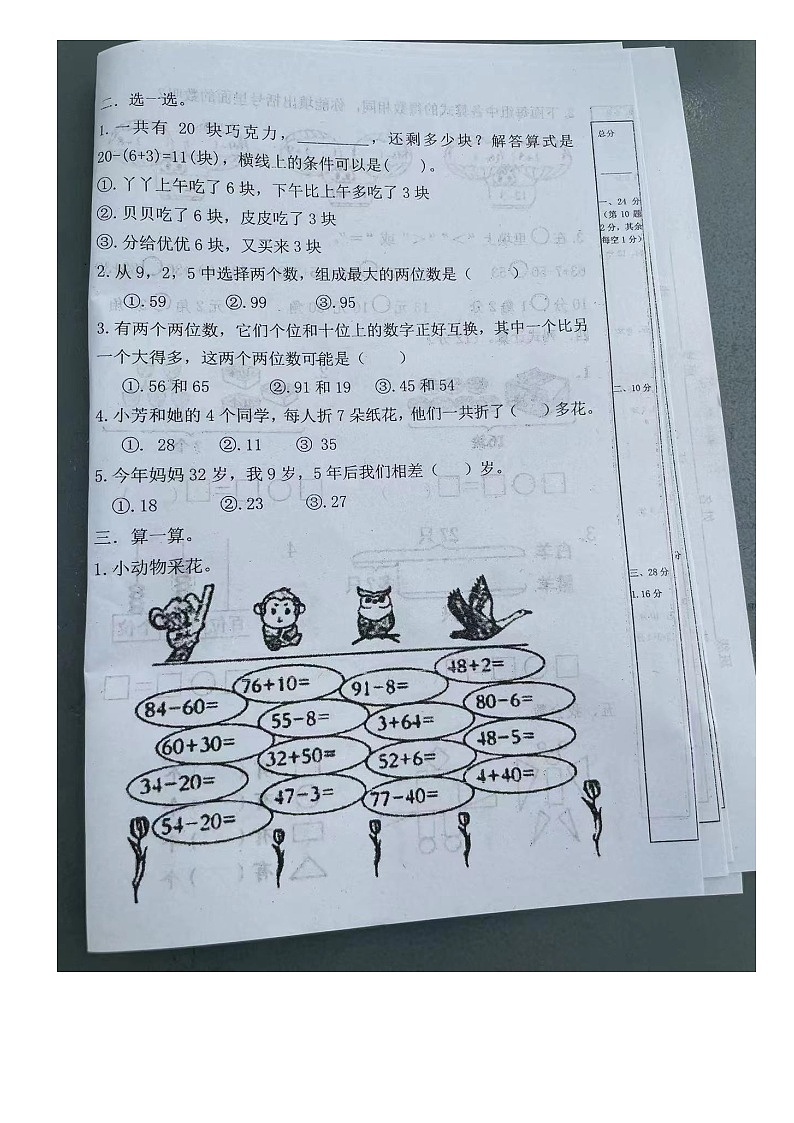 二．选一选。
1. 一共有 20 块巧克力，________，还剩多少块？解答算式是
20-(6+3)=11(块)，横线上的条件可以是(　　)。
①. 丫丫上午吃了 6 块，下午比上午多吃了 3 块
②. 贝贝吃了 6 块，皮皮吃了 3 块
③. 分给优优 6 块，又买来 3 块
2. 从 9，2，5 中选择两个数，组成最大的两位数是（　　）
①. 59　　②. 99　　③. 95
3. 有两个两位数，它们个位和十位上的数字正好互换，其中一个比另
一个大得多，这两个两位数可能是（　　）
①. 56 和 65　　②. 91 和 19　　③. 45 和 54
4. 小芳和她的 4 个同学，每人折 7 朵纸花，他们一共折了（　　）多花。
①. 28　　②. 11　　③ 35
5. 今年妈妈 32 岁，我 9 岁，5 年后我们相差（　　）岁。
①. 18　　②. 23　　③. 27
三．算一算。
1. 小动物采花。
84-60=
60+30=
34-20=
54-20=
76+10=
55-8=
32+50=
47-3=
91-8=
3+64=
52+6=
77-40=
48+2=
80-6=
48-5=
4+40=
总分
一、24 分
（第 10 题
2 分，其余
每空 1 分）
二、10 分
三、28 分
1. 16 分